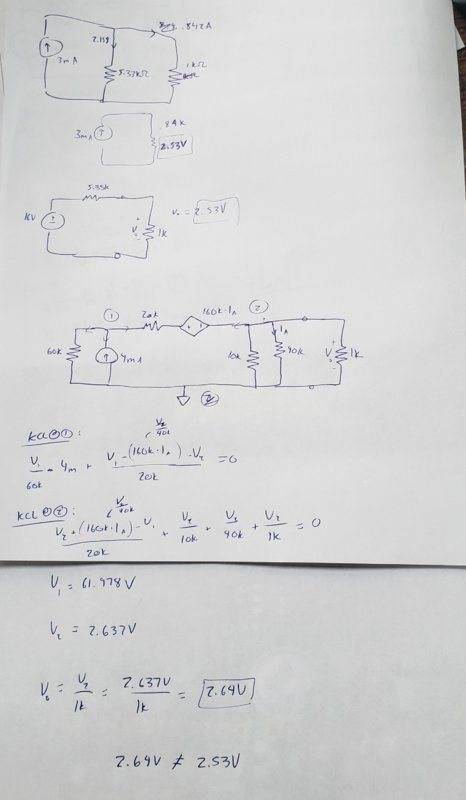 .842A
2.158
3mA
5.33kΩ
1kΩ
3mA
.84k
2.53V
5.33k
16V
V₀
1k
V₀ = 2.53V
①
20k
160k·I_A
②
60k
4mA
10k
I_A
40k
V₀
1k
KCL@①:
V₂/40k
V₁/60k - 4m + (V₁ - (160k·I_A) - V₂)/20k = 0
KCL@②:
V₂/40k
(V₂ + (160k·I_A) - V₁)/20k + V₂/10k + V₂/40k + V₂/1k = 0
V₁ = 61.978V
V₂ = 2.637V
V₀ = V₂/1k = 2.637V/1k = 2.64V
2.64V ≠ 2.53V